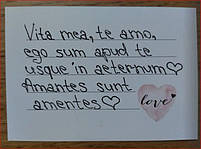 Vita mea, te amo,
ego sum apud te
usque in aeternum♡
Amantes sunt
amentes♡
love